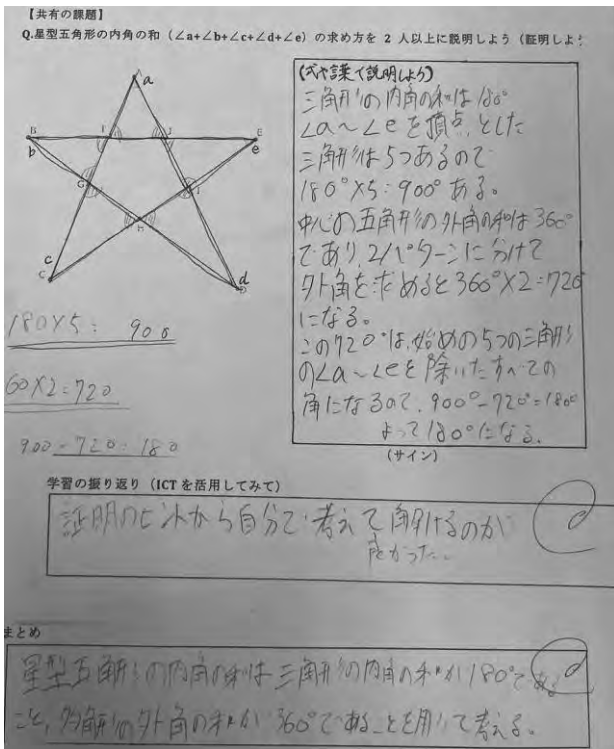 【共有の課題】
Q.星型五角形の内角の和（∠a+∠b+∠c+∠d+∠e）の求め方を 2 人以上に説明しよう（証明しよう
a
B
F
J
E
b
e
G
I
H
c
C
d
D
(式や言葉で説明しよう)
三角形の内角の和は180°
∠a～∠eを頂点とした
三角形は5つあるので
180°×5=900°ある。
中心の五角形の外角の和は360°
であり、2パターンに分けて
外角を求めると360°×2=720
になる。
この720°は、始めの5つの三角形
の∠a～∠eを除いたすべての
角になるので、900°-720°=180°
よって180°になる。
180×5= 900
60×2=720
900-720=180
(サイン)
学習の振り返り（ICT を活用してみて）
証明のヒントから自分で考えて解けるのが
良かった。
まとめ
星型五角形の内角の和は三角形の内角の和が180°である
こと、多角形の外角の和が360°であることを用いて考える。